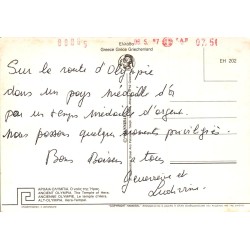 Ελλάδα
Greece Grèce Griechenland
EH 202
Sur la route d'Olympie
dans un pays médaille d'or
par un temps médaille d'argent.
Nous passons quelques moments privilégiés.
Bons Baisers a tous
Geneviève et
Ludivine
ΑΡΧΑΙΑ ΟΛΥΜΠΙΑ. Ο ναός της Ήρας
ANCIENT OLYMPIA. The Temple of Hera
ANCIENNE OLYMPIE. Le temple d'Hera
ALT-OLYMPIA. Hera-Tempel